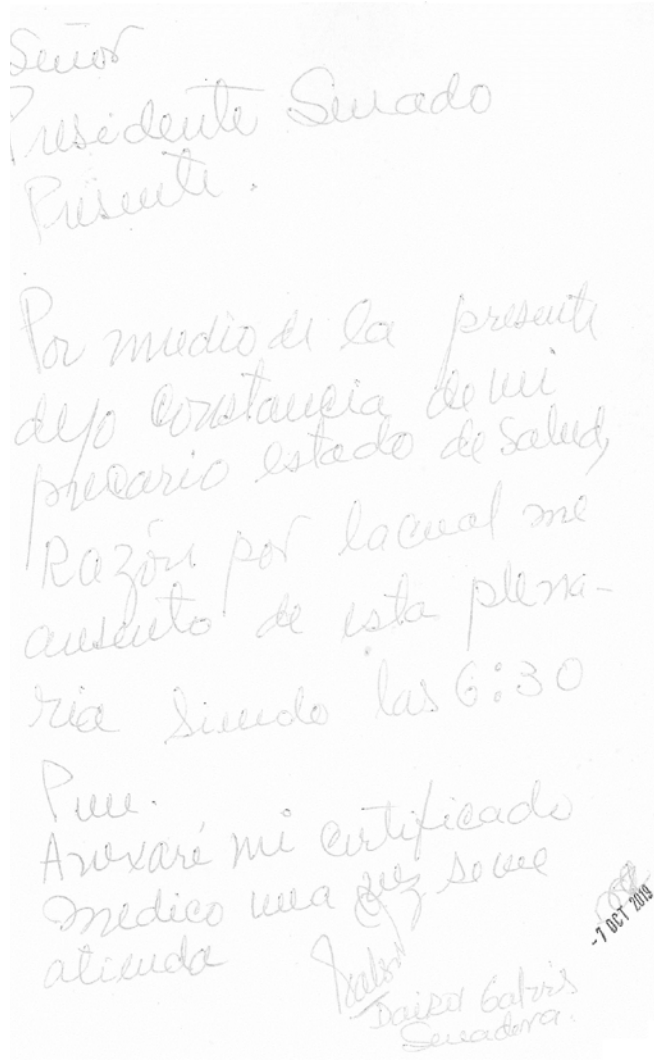 Señor
Presidente Senado
Presente.
Por medio de la presente
dejo constancia de mi
precario estado de Salud,
Razón por la cual me
ausento de esta plena-
ria siendo las 6:30
Pm.
Anexaré mi certificado
medico una vez se me
atienda
Daira Galvis
Senadora.
-7 OCT 2019